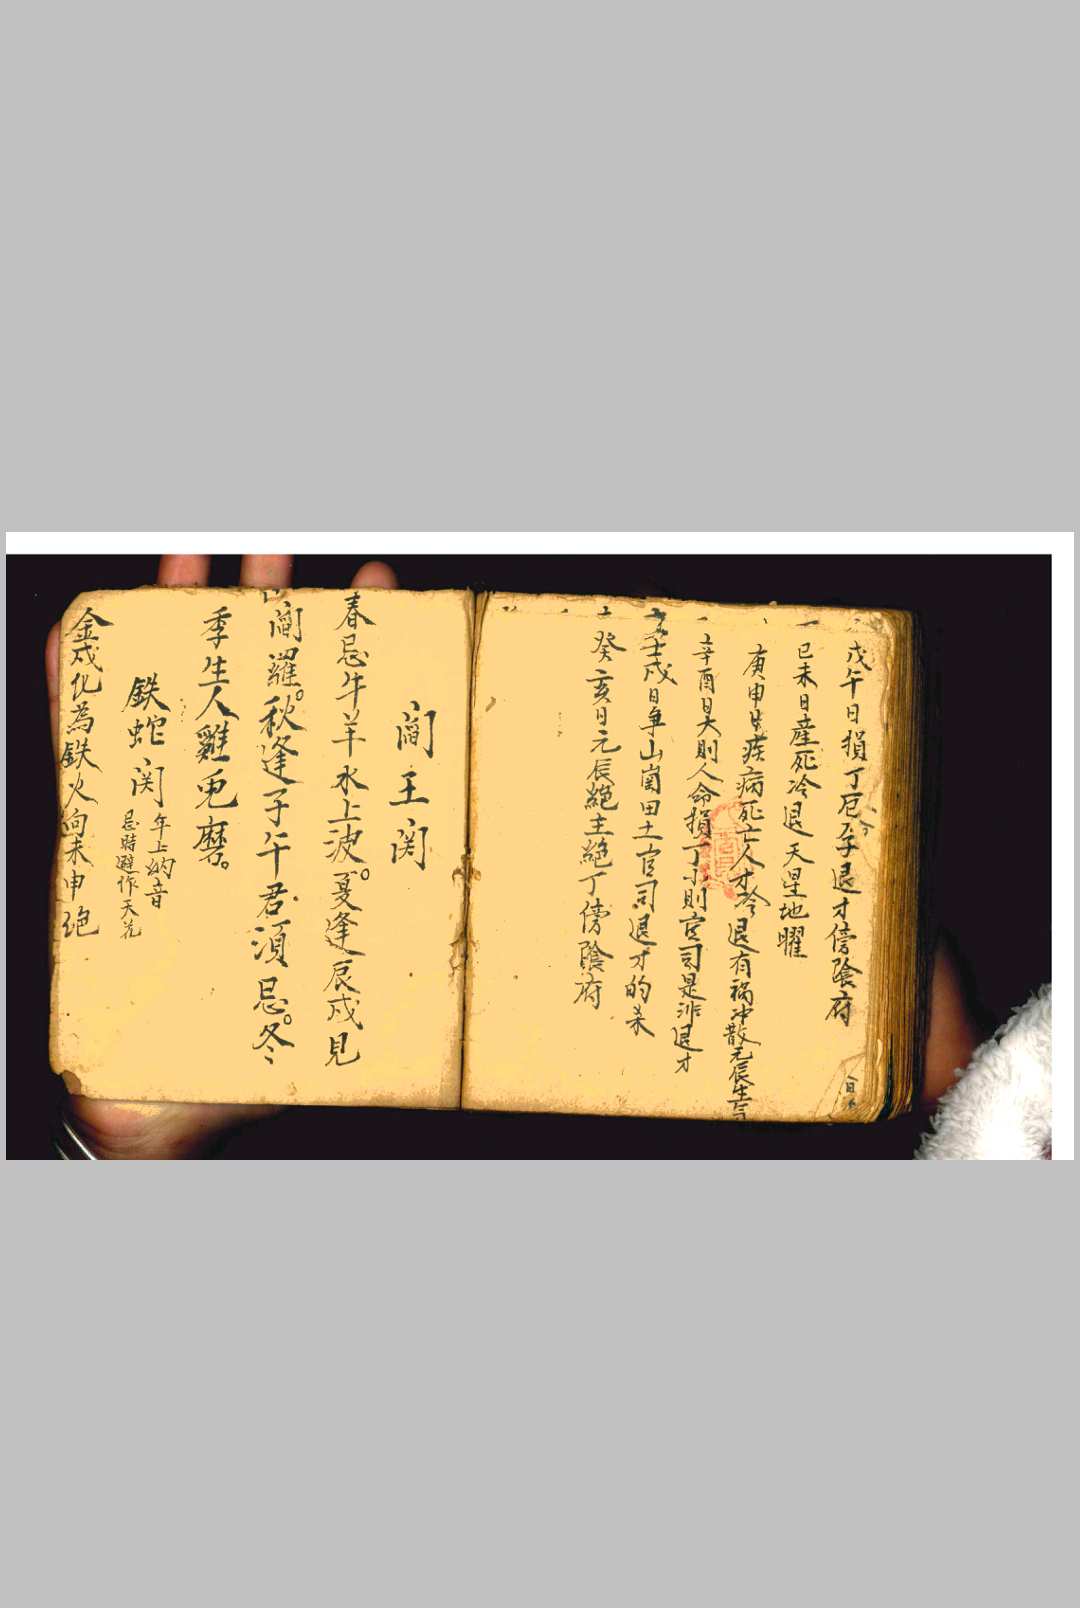 戊午日損丁厄孕退才傍陰府
己未日產死冷退天星地曜
庚申生疾病死亡人才冷退有禍冲散元辰生气
辛酉日大則人命損丁小則官司是非退才
壬戌日争山崗田土官司退才的杀
癸亥日元辰絕主絕丁傍陰府
閻王関
春忌牛羊水上波。夏逢辰戌見
閻羅。秋逢子午君須忌。冬
季生人雞兎磨。
鉄蛇関
年上納音
忌時避作天羌
金戌化為鉄火向未申絕